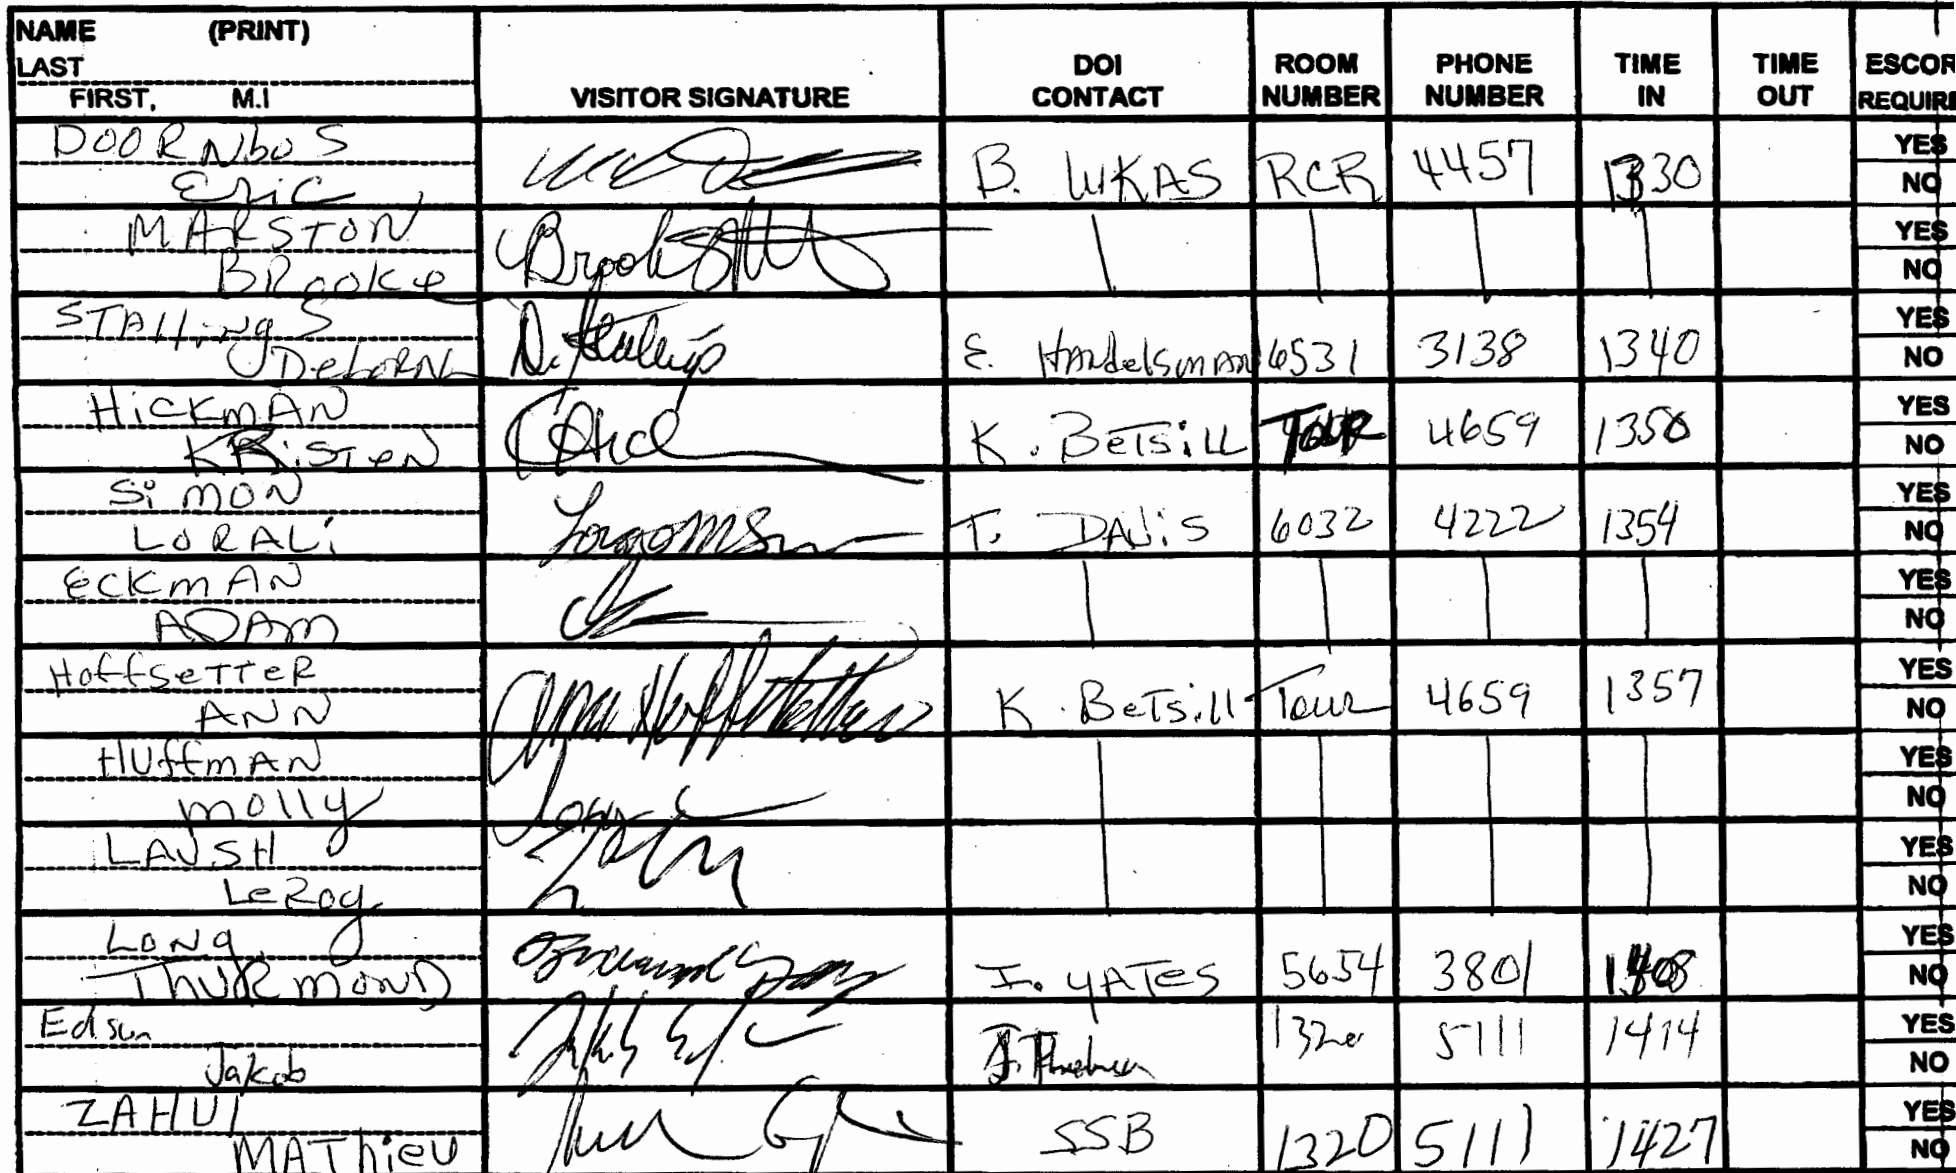 NAME (PRINT)
LAST
FIRST, M.I
VISITOR SIGNATURE
DOI CONTACT
ROOM NUMBER
PHONE NUMBER
TIME IN
TIME OUT
ESCOR
REQUIRE
DOORNboS
Eric
B. LUKAS RCR 4457 1330
YES
NO
MARSTON
BRooke
YES
NO
STAllingS
E. HANdelsmAN 6531 3138 1340
D. Stallings
YES
NO
HiCKmAN
KRiSTeN
K. BeTSiLL TOUR 4659 1350
YES
NO
SiMON
LORALi
T. DAViS 6032 4222 1354
YES
NO
ECKmAN
ADAm
YES
NO
HoffSeTTeR
ANN
K. BeTSill Tour 4659 1357
YES
NO
HUffmAN
molly
YES
NO
LAUSH
LeRoy
YES
NO
LONg
ThURmOND
I. YATeS 5654 3801 1408
YES
NO
Edsun
Jakob
1320 5111 1414
YES
NO
ZAHUI
MAThieu
SSB 1320 5111 1427
YES
NO